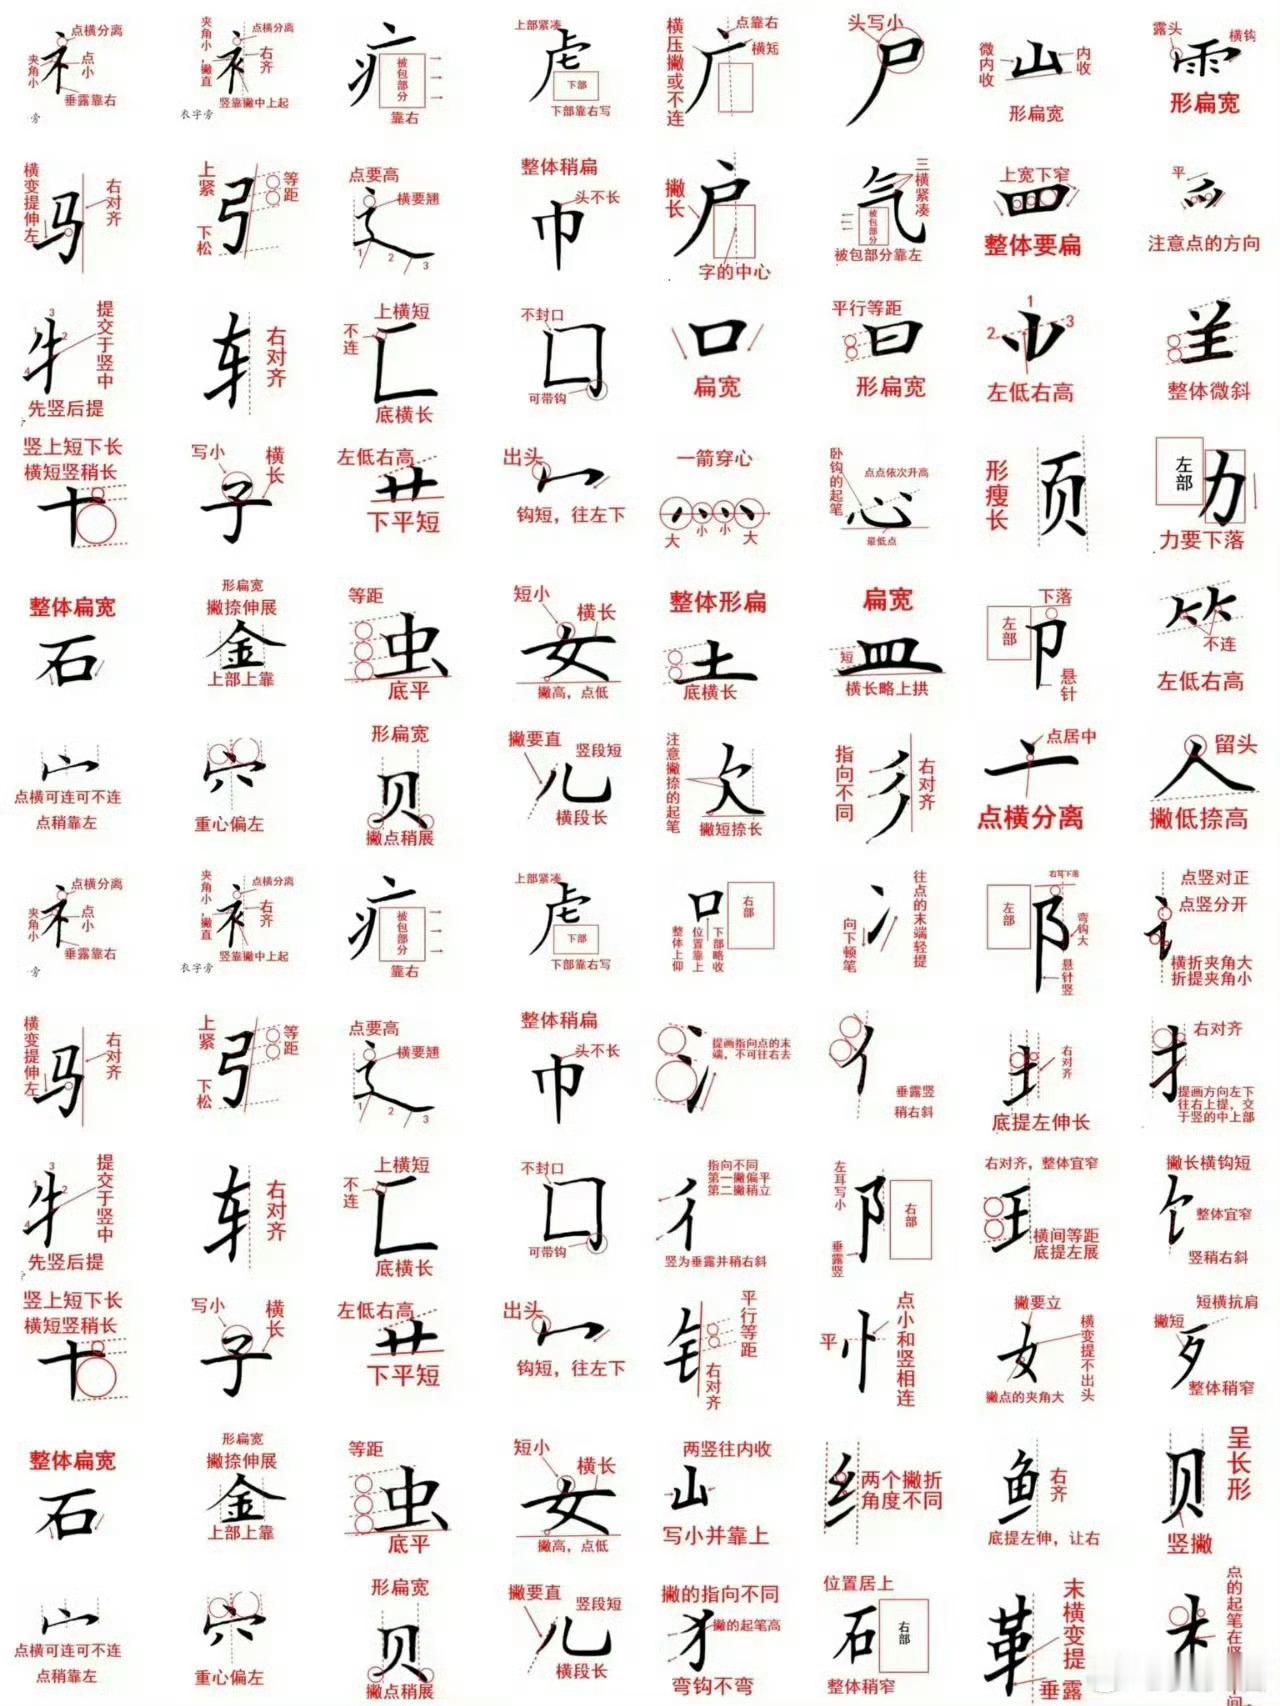 礻 点横分离 夹角小 点小 垂露靠右 旁
衤 夹角小，撇直 点横分离 右齐 竖靠撇中上起 衣字旁
疒 被包部分 靠右
虍 上部紧凑 下部 下部靠右写
广 横压撇或不连 点靠右 横短
尸 头写小
山 微内收 内收 形扁宽
雨 露头 横钩 形扁宽
马 横变提伸左 右对齐
弓 上紧下松 等距
辶 点要高 横要翘 1 2 3
巾 整体稍扁 头不长
户 撇长 字的中心
气 三横紧凑 被包部分 被包部分靠左
罒 上宽下窄 整体要扁
平 注意点的方向
牛 3 1 2 4 提交于竖中 先竖后提
车 右对齐
匚 上横短 不连 底横长
冂 不封口 可带钩
口 扁宽
曰 平行等距 形扁宽
1 2 3 左低右高
整体微斜
十 竖上短下长 横短竖稍长
子 写小 横长
艹 左低右高 下平短
冖 出头 钩短，往左下
灬 一箭穿心 大 小 小 大
心 卧钩的起笔 点点依次升高 最低点
页 形瘦长
力 左部 力要下落
石 整体扁宽
金 形扁宽 撇捺伸展 上部上靠
虫 等距 底平
女 短小 横长 撇高，点低
土 整体形扁 底横长
皿 扁宽 短 横长略上拱
卩 下落 左部 悬针
⺮ 不连 左低右高
宀 点横可连可不连 点稍靠左
穴 重心偏左
贝 形扁宽 撇点稍展
儿 撇要直 竖段短 横段长
欠 注意撇捺的起笔 撇短捺长
彡 指向不同 右对齐
亠 点居中 点横分离
人 留头 撇低捺高
礻 点横分离 夹角小 点小 垂露靠右 旁
衤 夹角小，撇直 点横分离 右齐 竖靠撇中上起 衣字旁
疒 被包部分 靠右
虍 上部紧凑 下部 下部靠右写
口 右部 整体上仰 位置靠上 下部略收
冫 往点的末端轻提 向下顿笔
阝 右耳下落 左部 弯钩大 悬针竖
讠 点竖对正 点竖分开 横折夹角大 折提夹角小
马 横变提伸左 右对齐
弓 上紧下松 等距
辶 点要高 横要翘 1 2 3
巾 整体稍扁 头不长
氵 提画指向点的末端，不可往右去
亻 垂露竖 稍右斜
土 右对齐 底提左伸长
扌 右对齐 提画方向左下往右上提，交于竖的中上部
牛 3 1 2 4 提交于竖中 先竖后提
车 右对齐
匚 上横短 不连 底横长
冂 不封口 可带钩
彳 指向不同 第一撇偏平 第二撇稍立 竖为垂露并稍右斜
阝 左耳写小 右部 垂露竖
王 右对齐，整体宜窄 横间等距 底提左展
饣 撇长横钩短 整体宜窄 竖稍右斜
十 竖上短下长 横短竖稍长
子 写小 横长
艹 左低右高 下平短
冖 出头 钩短，往左下
钅 平行等距 右对齐
忄 点小和竖相连 平
女 撇要立 横变提不出头 撇点的夹角大
歹 短横抗肩 撇短 整体稍窄
石 整体扁宽
金 形扁宽 撇捺伸展 上部上靠
虫 等距 底平
女 短小 横长 撇高，点低
山 两竖往内收 写小并靠上
纟 两个撇折角度不同
鱼 右齐 底提左伸，让右
贝 呈长形 竖撇
宀 点横可连可不连 点稍靠左
穴 重心偏左
贝 形扁宽 撇点稍展
儿 撇要直 竖段短 横段长
犭 撇的指向不同 撇的起笔高 弯钩不弯
石 位置居上 右部 整体稍窄
革 末横变提 垂露
木 点的起笔在竖